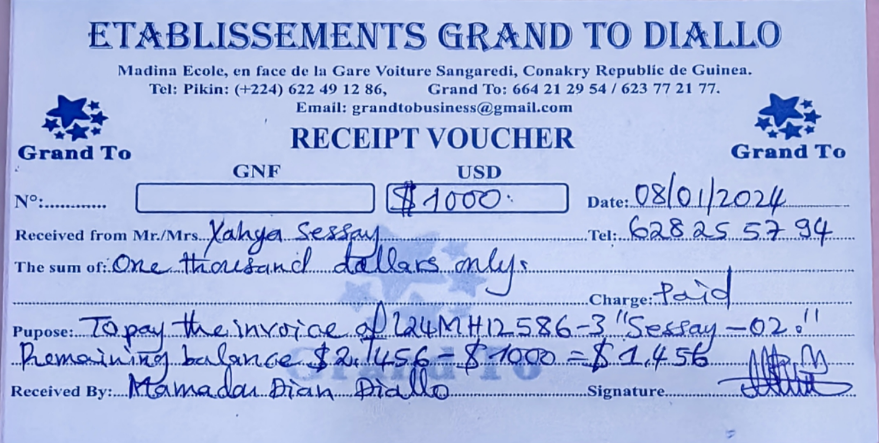 ETABLISSEMENTS GRAND TO DIALLO
Madina Ecole, en face de la Gare Voiture Sangaredi, Conakry Republic de Guinea.
Tel: Pikin: (+224) 622 49 12 86, Grand To: 664 21 29 54 / 623 77 21 77.
Email: grandtobusiness@gmail.com
Grand To
RECEIPT VOUCHER
Grand To
GNF USD
N°:............. $1000. Date: 08/01/2024
Received from Mr./Mrs. Yahya Sessay Tel: 628 25 57 94
The sum of: One thousand dollars only.
Charge: Paid
Pupose: To pay the invoice of L24MH12586-3 "Sessay-02."
Remaining balance $2.456-$1000=$1.456
Grand To
Received By: Mamadou Dian Diallo Signature